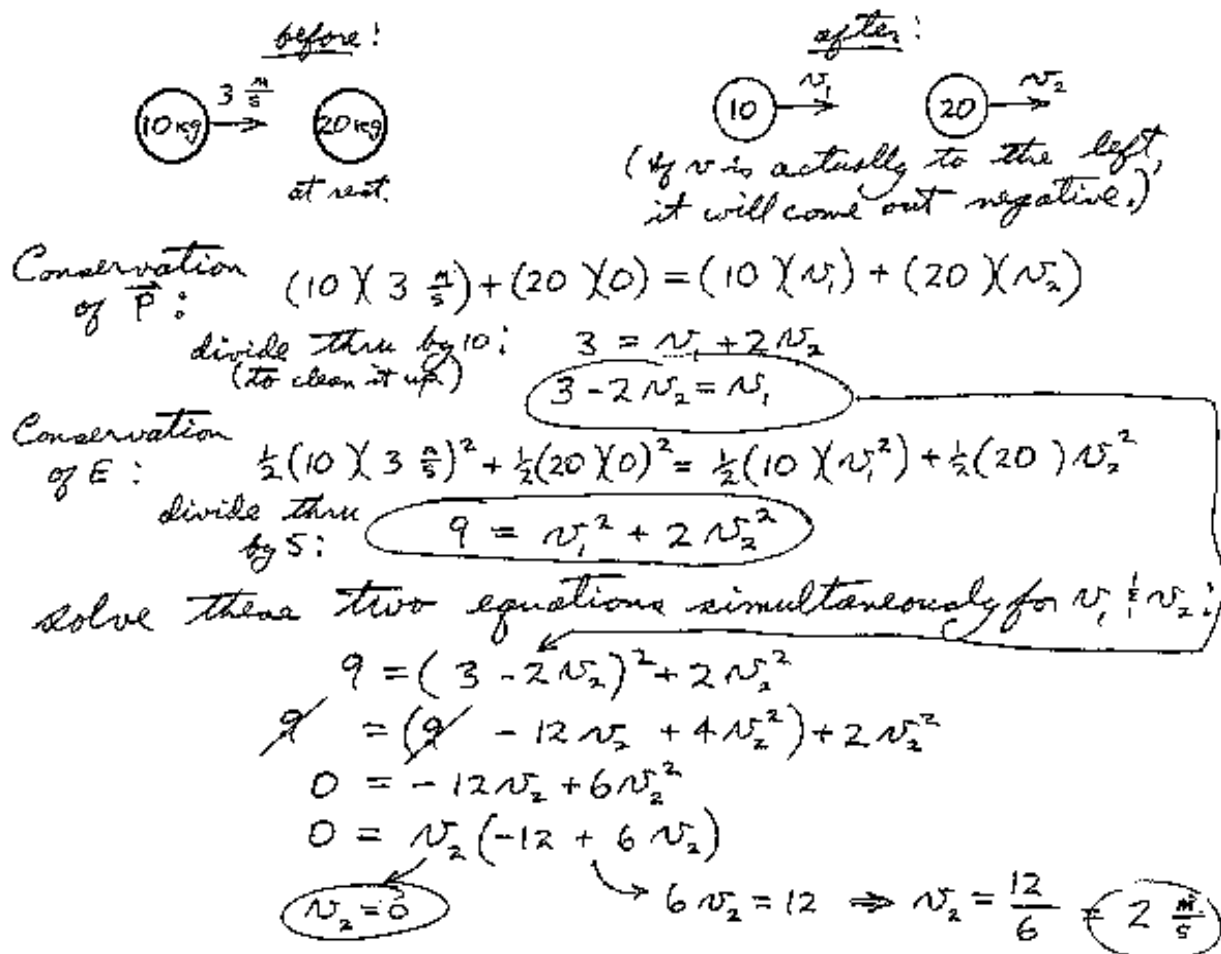 before:
after:
3 m/s
v₁
v₂
10 kg
20 kg
10
20
at rest.
(If v is actually to the left,
it will come out negative.)
Conservation
of P⃗: (10)(3 m/s) + (20)(0) = (10)(v₁) + (20)(v₂)
divide thru by 10: 3 = v₁ + 2v₂
(to clean it up)
3 - 2v₂ = v₁
Conservation
of E: ½(10)(3 m/s)² + ½(20)(0)² = ½(10)(v₁²) + ½(20)v₂²
divide thru
by 5: 9 = v₁² + 2v₂²
solve these two equations simultaneously for v₁ & v₂:
9 = (3 - 2v₂)² + 2v₂²
9 = (9 - 12v₂ + 4v₂²) + 2v₂²
0 = -12v₂ + 6v₂²
0 = v₂(-12 + 6v₂)
v₂ = 0
6v₂ = 12 ⇒ v₂ = 12/6 = 2 m/s